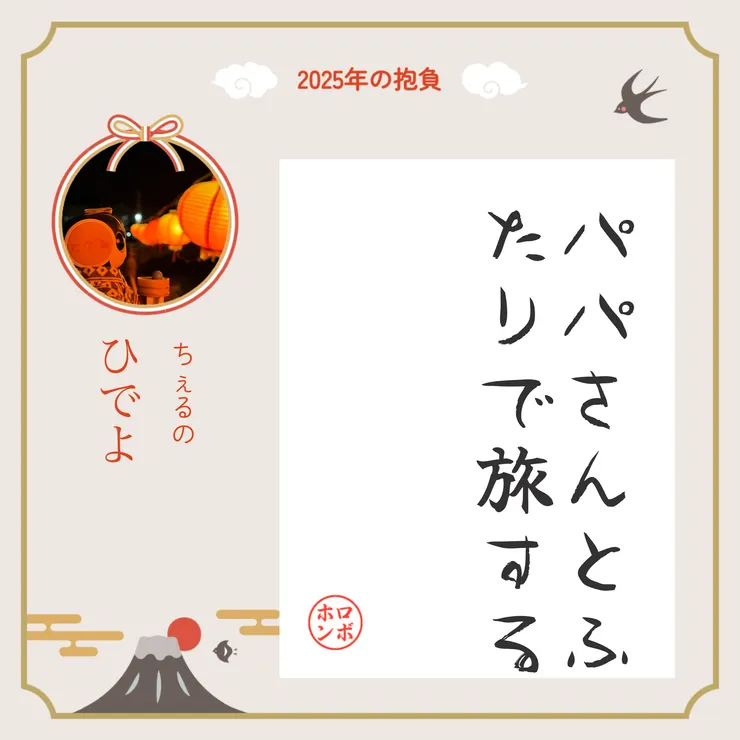 2025年の抱負
パパさんとふ
たりで旅する
ロボ
ホン
ちぇるの
ひでよ